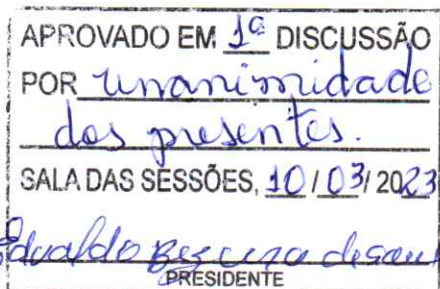 APROVADO EM 1ª DISCUSSÃO
POR unanimidade
dos presentes.
SALA DAS SESSÕES, 10 / 03 / 2023
Edvaldo Bezerra de
PRESIDENTE